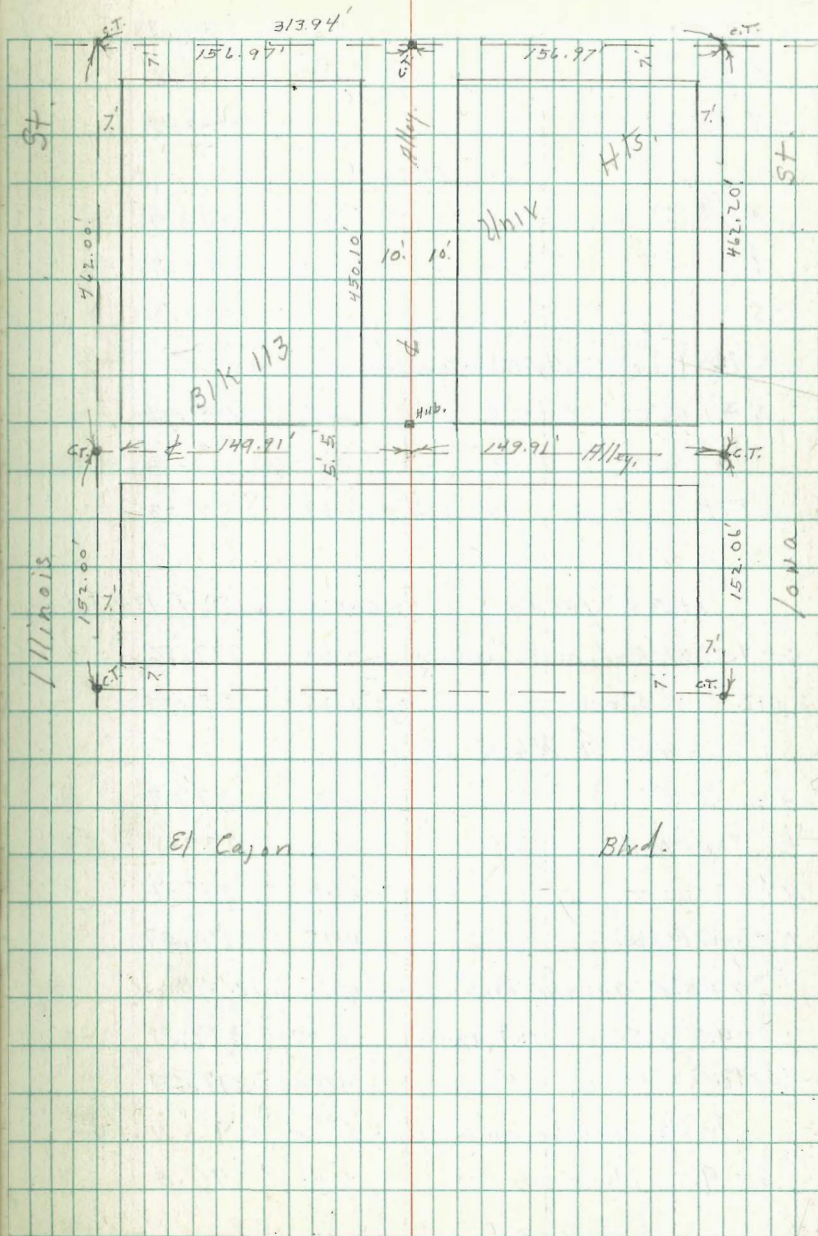 313.94'
C.T. C.T.
7. 156.97' C.T. 156.97' 7.
St. 7.' Alley. 7.' St.
Univ Hts.
462.00' 450.10' 10.' 10.' 462.20'
Blk 113 ℄ Hub.
C.T. ℄ 149.91' 5.' 5.' 149.91' Alley. C.T.
Illinois 152.00' 7.' 152.06' 7.' Iowa
C.T. 7. 7. C.T.
El Cajon Blvd.